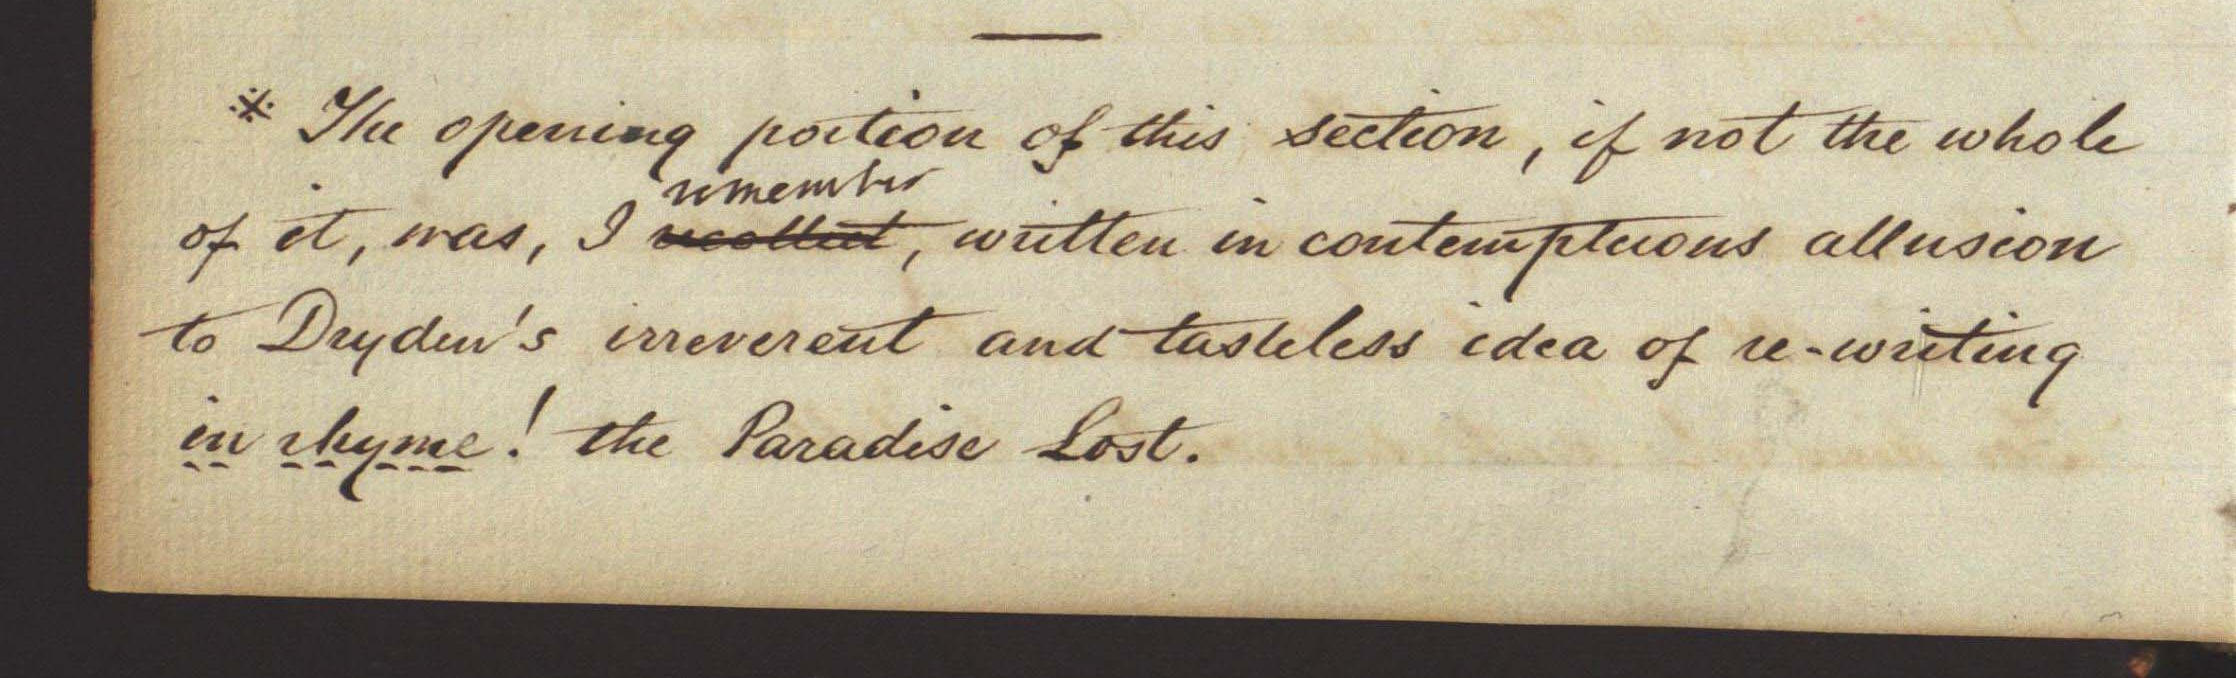 ※ The opening portion of this section, if not the whole
remember
of it, was, I recollect, written in contemptuous allusion
to Dryden's irreverent and tasteless idea of re-writing
in rhyme! the Paradise Lost.